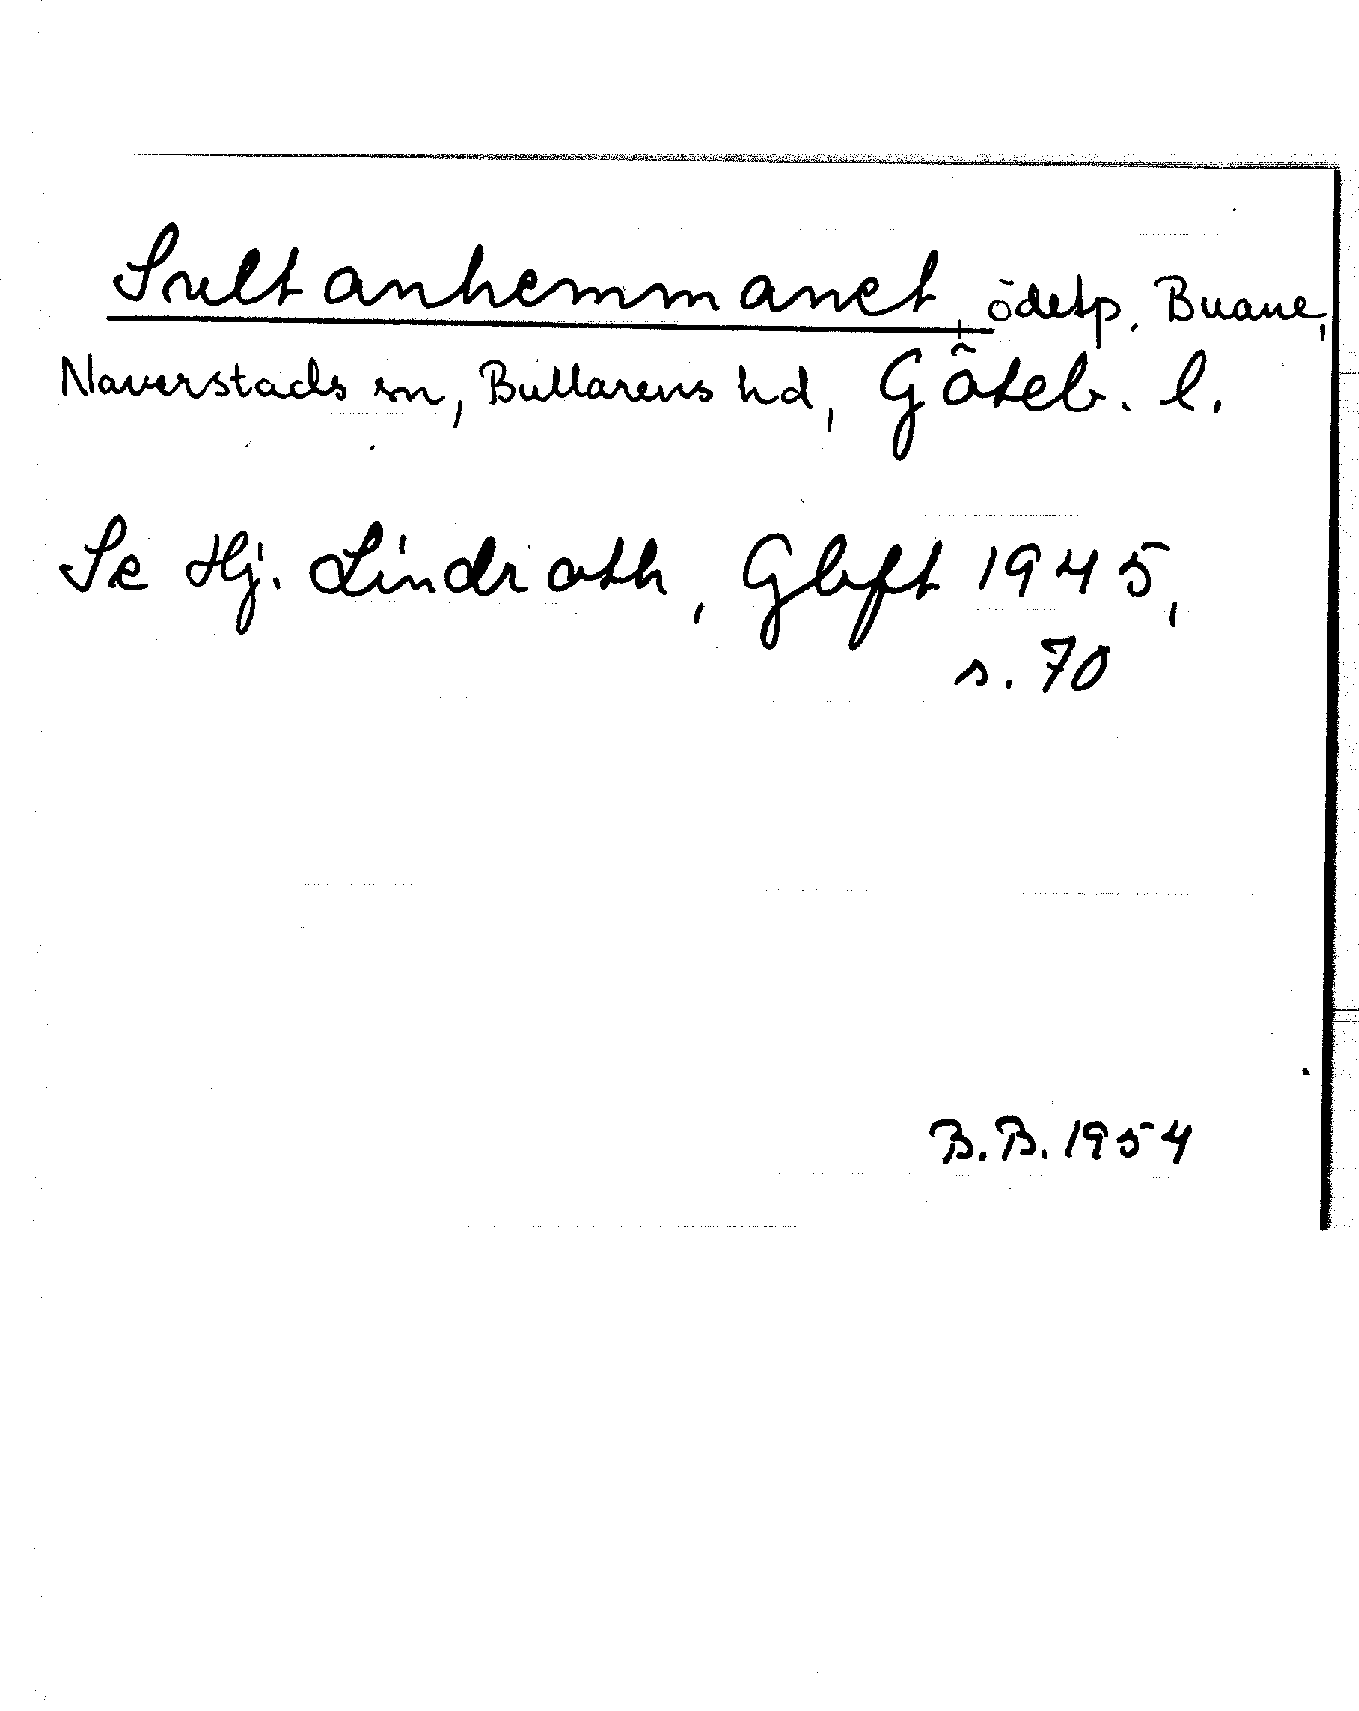 Sultanhemmanet, ödetp. Buane,
Naverstads sn, Bullarens hd, Göteb. l.
Se Hj. Lindroth, Gbft 1945,
s. 70
B.B. 1954